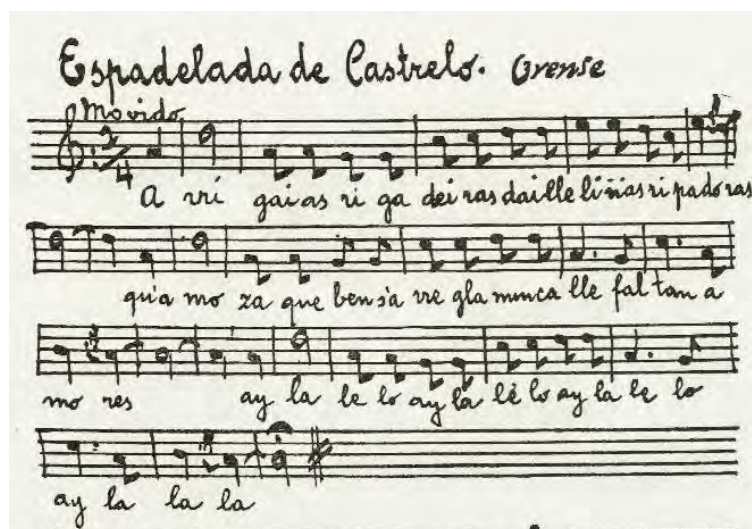 Espadelada de Castrelo. Orense
Movido
2/4
A rri gai as ri ga dei ras dai lle li ñas ri pado ras
qu'a mo za que ben s'a rre gla nunca lle fal tan a
mo res ay la le lo ay la lé lo ay la le lo
ay la la la